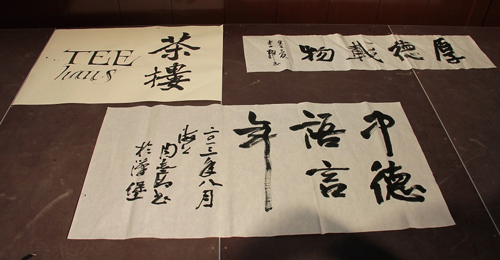 TEE
haus
茶樓
厚德載物
中德
語言
年
二〇一三年八月
於漢堡